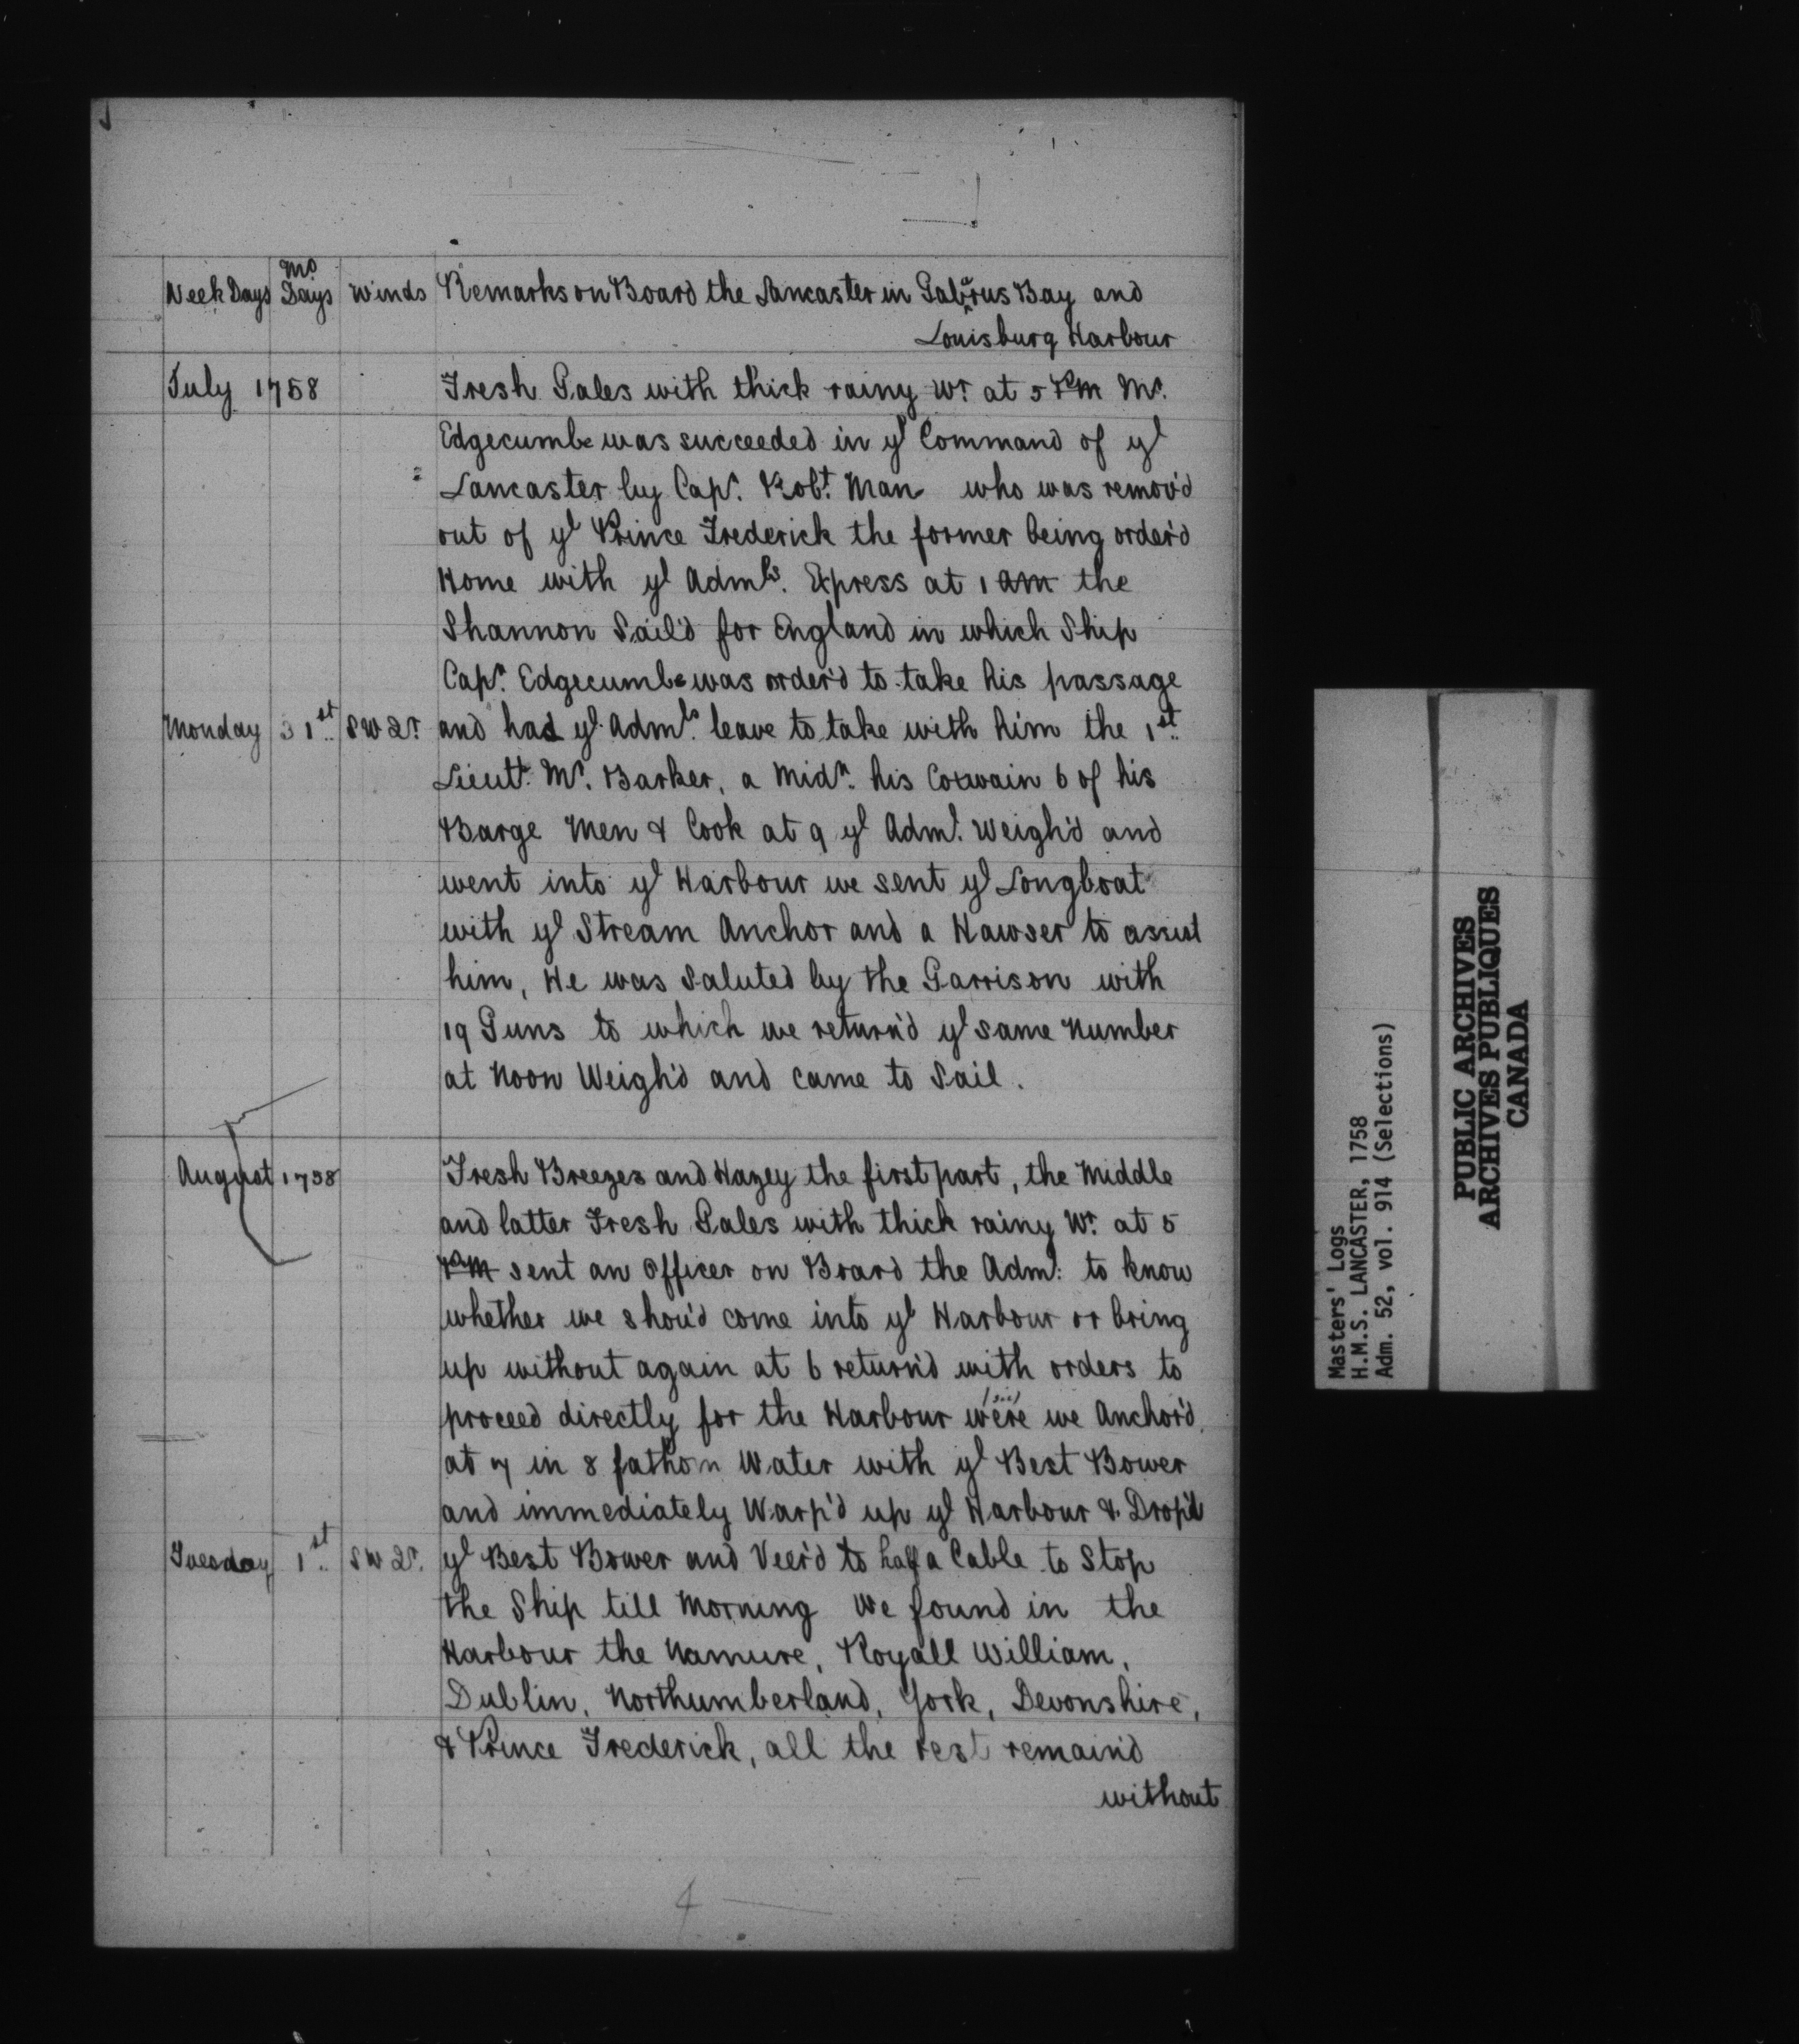 Week Days Mo Days Winds Remarks on Board the Lancaster in Gabrus Bay and
Louisburg Harbour
July 1758 Fresh Gales with thick rainy Wr. at 5 PM Mr.
Edgecumbe was succeeded in ye Command of ye
Lancaster by Capn. Robt. Man who was remov'd
out of ye Prince Frederick the former being order'd
Home with ye Admls. Express at 1 AM the
Shannon Sail'd for England in which Ship
Capn. Edgecumbe was order'd to take his passage
Monday 31st SW and had ye Admls. leave to take with him the 1st
Lieutt. Mr. Barker, a Midn. his Coxwain 6 of his
Barge Men & Cook at 9 ye Adml. Weigh'd and
went into ye Harbour we sent ye Longboat
with ye Stream Anchor and a Hawser to assist
him, He was Saluted by the Garrison with
19 Guns to which we return'd ye same Number
at Noon Weigh'd and came to Sail.
August 1758 Fresh Breezes and Hazey the first part, the Middle
and latter Fresh Gales with thick rainy Wr. at 5
PM sent an Officer on Board the Adml: to know
whether we shou'd come into ye Harbour or bring
up without again at 6 return'd with orders to
proceed directly for the Harbour were (sic) we Anchor'd
at 7 in 8 fathom Water with ye Best Bower
and immediately Warp'd up ye Harbour & Drop'd
Tuesday 1st SW ye Best Bower and Veer'd to half a Cable to Stop
the Ship till Morning We found in the
Harbour the Namure, Royall William,
Dublin, Northumberland, York, Devonshire,
& Prince Frederick, all the rest remain'd
without
4
Masters' Logs
H.M.S. LANCASTER, 1758
Adm. 52, vol. 914 (Selections)
PUBLIC ARCHIVES
ARCHIVES PUBLIQUES
CANADA